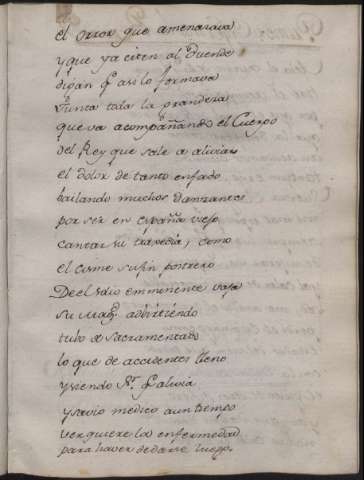 el orror que amenazava
y que ya citen al Duende
digan q asi lo formava
Junta toda la grandeza
que va acompañando el Cuerpo
del Rey que sale a aliviar
el dolor de tanto enfado
bailando muchos danzantes
por ser en España viejo
cantar su tragedia, como
el cisne su fin postrero
De el solio eminente vaja
su Mag. advirtiendo
tubo de Sacramentado
lo que de accidentes lleno
y siendo Sr. q alivia
y savio medico a un tiempo
ver quiere la enfermedad
para haver de darse luego.